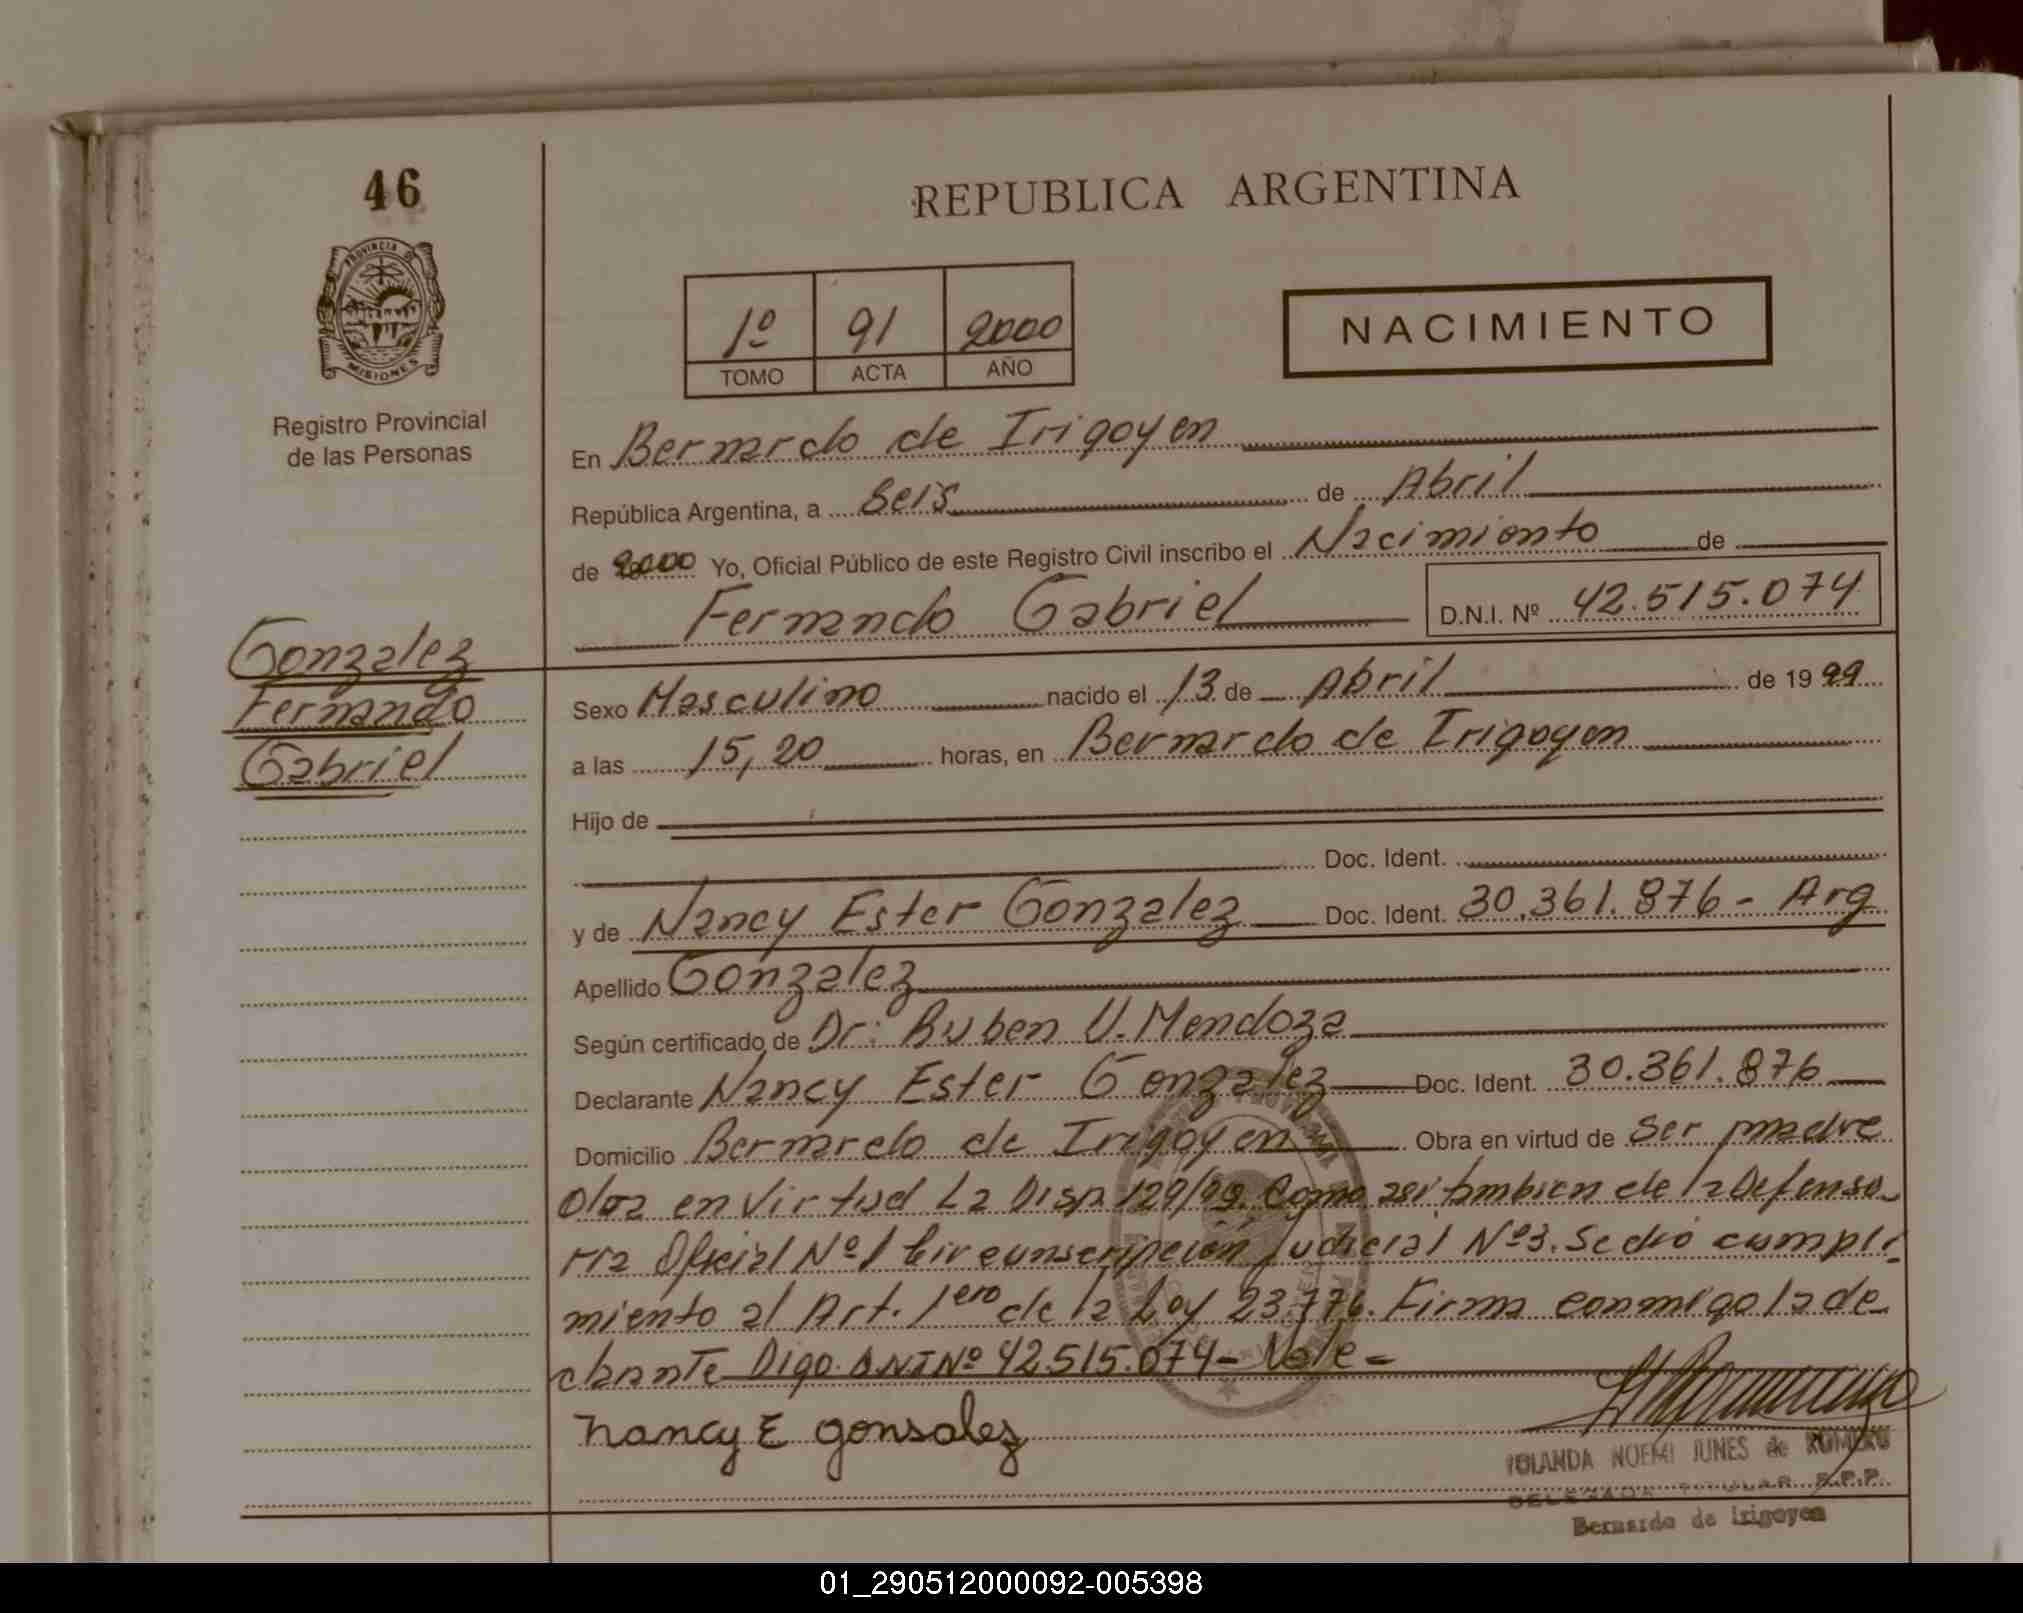 46
REPUBLICA ARGENTINA
PROVINCIA DE
MISIONES
Registro Provincial
de las Personas
1º 91 2000
TOMO ACTA AÑO
NACIMIENTO
En Bernardo de Irigoyen
República Argentina, a Seis de Abril
de 2000 Yo, Oficial Público de este Registro Civil inscribo el Nacimiento de
Fernando Gabriel D.N.I. Nº 42.515.074
Gonzalez
Fernando
Gabriel
Sexo Masculino nacido el 13 de Abril de 1999
a las 15,20 horas, en Bernardo de Irigoyen
Hijo de
Doc. Ident.
y de Nancy Ester Gonzalez Doc. Ident. 30.361.876 - Arg
Apellido Gonzalez
Según certificado de Dr: Ruben V. Mendoza
Declarante Nancy Ester Gonzalez Doc. Ident. 30.361.876
Domicilio Bernardo de Irigoyen Obra en virtud de Ser madre
Obra en Virtud La Disp. 129/99. Como asi tambien de la Defenso-
ria Oficial Nº 1 Circunscripción Judicial Nº 3. Se dió cumpli-
miento al Art. 1ero de la Ley 23.776. Firma conmigo la de-
clarante Digo. DNI Nº 42.515.074 - Vale -
Nancy E gonsalez
YOLANDA NOEMI JUNES de ROMERO
DELEGADA TITULAR R.P.P.
Bernardo de Irigoyen
01_290512000092-005398